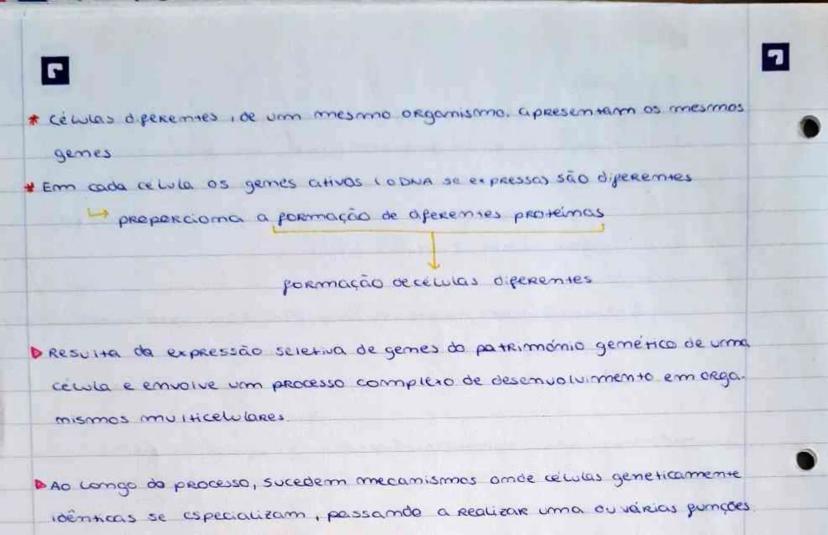 * Células diferentes, de um mesmo organismo, apresentam os mesmos
genes
* Em cada célula os genes ativos (o DNA se expressa) são diferentes
↳ proporciona a formação de diferentes proteínas
formação de células diferentes
▷ Resulta da expressão seletiva de genes do património genético de uma
célula e envolve um processo complexo de desenvolvimento em orga-
nismos multicelulares.
▷ Ao longo do processo, sucedem mecanismos onde células geneticamente
idênticas se especializam, passando a realizar uma ou várias funções